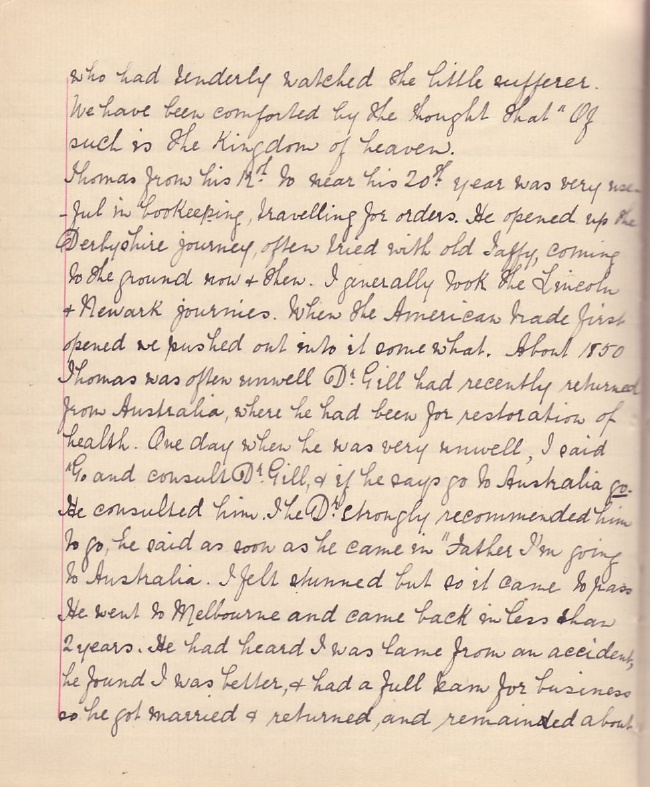 who had tenderly watched the little sufferer.
We have been comforted by the thought that "Of
such is the Kingdom of heaven.
Thomas from his 12th to near his 20th year was very use-
-ful in bookeeping, travelling for orders. He opened up the
Derbyshire journey, often tried with old Taffy, coming
to the ground now & then. I generally took the Lincoln
& Newark journies. When the American trade first
opened we pushed out into it somewhat. About 1850
Thomas was often unwell Dr Gill had recently returned
from Australia, where he had been for restoration of
health. One day when he was very unwell, I said
"Go and consult Dr Gill, & if he says go to Australia go.
He consulted him. The Dr strongly recommended him
to go, he said as soon as he came in "Father I'm going
to Australia. I felt stunned but so it came to pass
He went to Melbourne and came back in less than
2 years. He had heard I was lame from an accident,
he found I was better, & had a full team for business
so he got married & returned, and remainded about